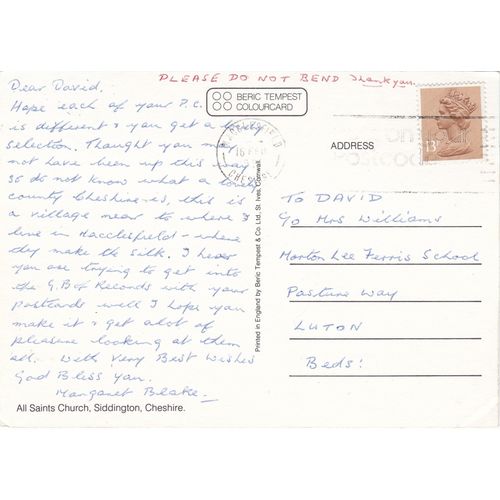 PLEASE DO NOT BEND Thankyou
BERIC TEMPEST
COLOURCARD
Dear David.
Hope each of your P.C.
is different & you get a lovely
selection. Thought you may
not have been up this way
so do not know what a lovely
county Cheshire is, this is
a village near to where I
live in Macclesfield - where
they make the silk. I hear
you are trying to get into
the G.B of Records with your
postcards well I hope you
make it & get alot of
pleasure looking at them
all. With Very Best Wishes
God Bless You.
Margaret Blake.
All Saints Church, Siddington, Cheshire.
Printed in England by Beric Tempest & Co. Ltd., St. Ives, Cornwall.
MACCLESFIELD
16
CHESHIRE
13
ADDRESS
TO DAVID
C/o Mrs Williams
Morton Lee Ferris School
Pasture Way
LUTON
Beds!